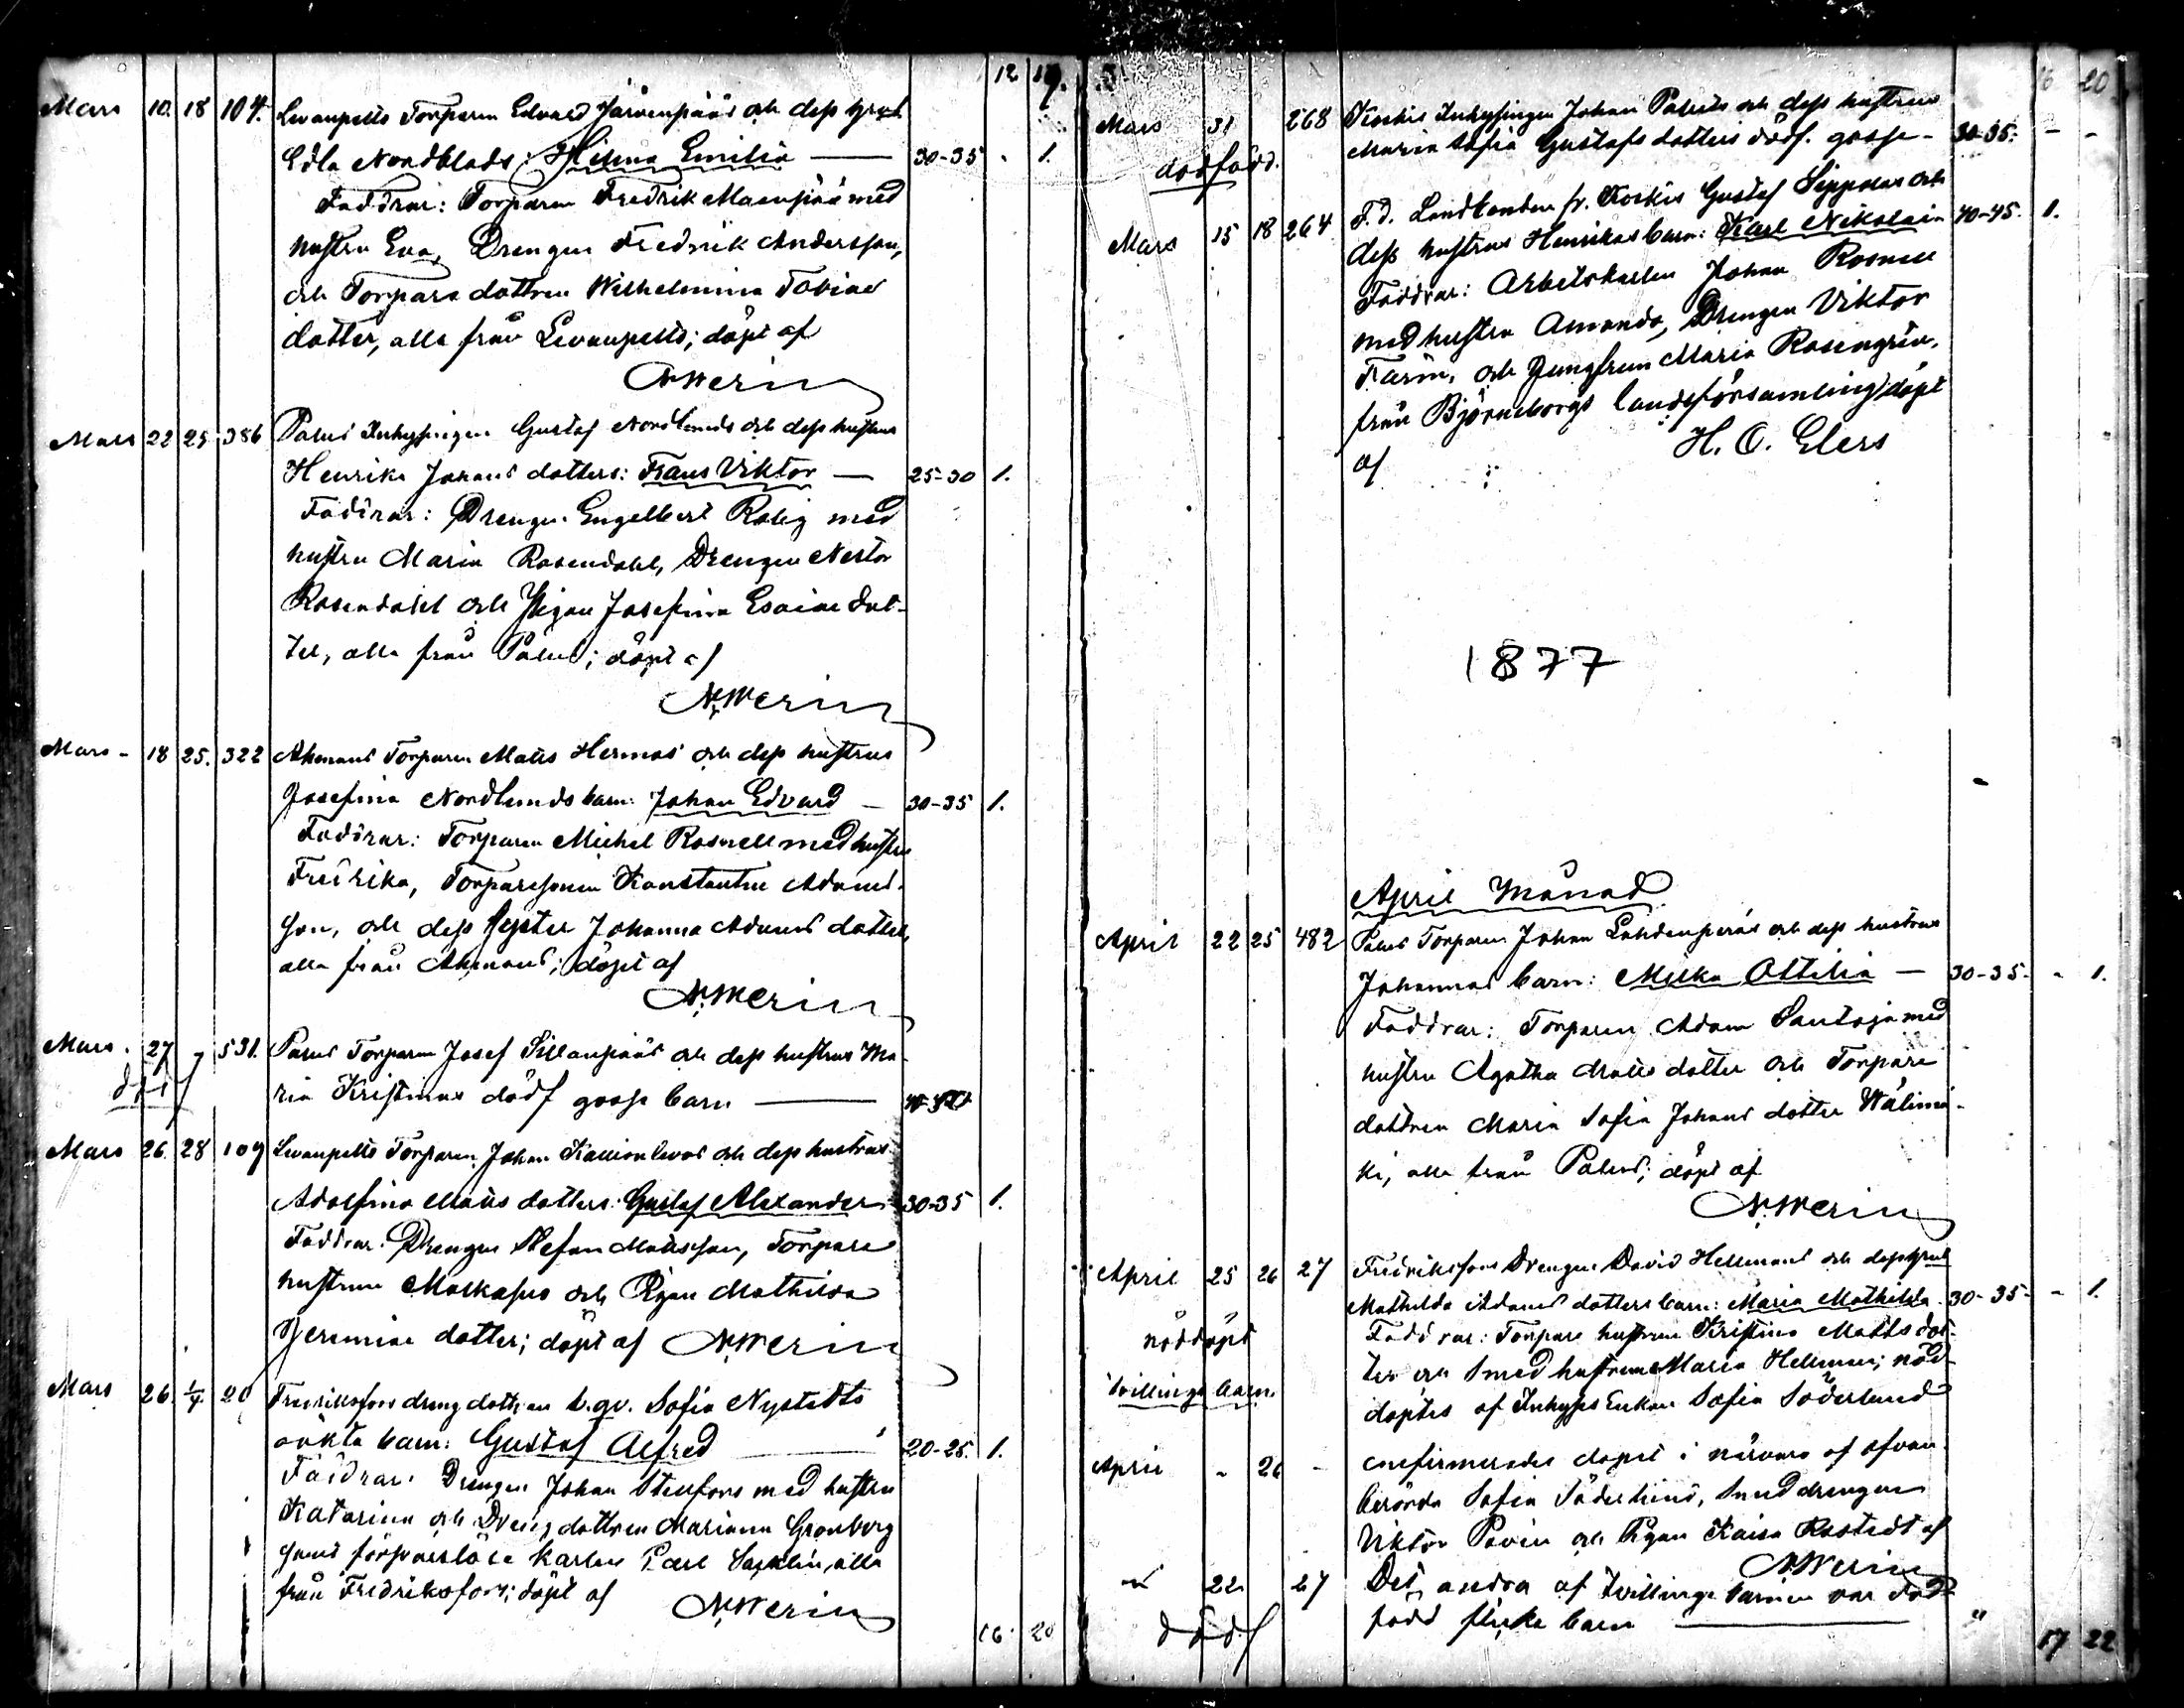 12 19.
Mars 10. 18 104. Levanpelto Torparen Edvard Järvenpääs och dess hustrus
Edla Nordblads: Hilma Emilia — 30-35 - 1.
Faddrar: Torparen Fredrik Maenpää med
hustru Eva, Drengen Fredrik Andersson,
och Torpare dottren Wilhelmina Tobiae
dotter, alla från Levanpelto; döpt af
N. Merin
Mars 22 25 386 Palus Inhysingen Gustaf Nordlunds och dess hustrus
Henrika Johans dotters: Frans Viktor — 25-30 1.
Faddrar: Drengen Engelbert Rolig med
hustru Maria Rosendahl, Drengen Nestor
Rosendahl och Pigan Josefina Esaiae dot-
ter, alla från Palus; döpt af
N. Merin
Mars - 18 25. 322 Ahmaus Torparen Matts Hermas och dess hustrus
Josefina Nordlunds barn: Johan Edvard — 30-35 1.
Faddrar: Torparen Michel Rosnell med hustru
Fredrika, Torparesonen Konstantin Adams-
son, och dess Syster Johanna Adams dotter,
alla från Ahmaus; döpt af
N. Merin
Mars. 27 531. Palus Torparen Josef Sillanpääs och dess hustrus Ma-
dödf ria Kristinas dödf gosse barn —
Mars 26. 28 109 Levanpelto Torparen Johan Kallionlevos och dess hustrus
Adolfina Matts dotters: Gustaf Alexander 30-35 1.
Faddrar: Drengen Stefan Mattsson, Torpare
hustrun och Pigan Mathilda
Jeremiae dotter; döpt af N. Merin
Mars 26. 1/4. 20 Fredriksfors dreng dottren b.qv. Sofia Nystedts
oäkta barn: Gustaf Alfred — 20-25. 1.
Faddrar: Drengen Johan Stenfors med hustru
Katarina och Dreng dottren Mariana Granberg
samt försvarslöse karlen Carl alla
från Fredriksfors; döpt af N. Merin
16. 20
16 20
Mars 31 268 Koskis Inhysingen Johan Palus och dess hustrus
dödfödd. Maria Sofia Gustafs dotters dödf. gosse - 30-35. - -
Mars 15 18 264 F.d. Landbonden fr. Koskis Gustaf Sippolas och
dess hustrus Henrikas barn: Karl Nikolai 40-45. 1.
Faddrar: Arbetskarlen Johan Rosnell
med hustru Amanda, Drengen Viktor
Farm, och Jungfrun Maria Rosengren,
från Björneborgs landsförsamling döpt
af H. O. Elers
1877
April Månad
April 22 25 482 Palus Torparen Johan Lahdenperäs och dess hustrus
Johannas barn: Milka Ottilia — 30-35. - 1.
Faddrar: Torparen Adam Santoja med
hustru Agatha Matts dotter och Torpare
dottren Maria Sofia Johans dotter Wälimä-
ki, alla från Palus; döpt af
N. Merin
April 25 26 27 Fredriksfors Drengen David Hellmans och dess hustrus
Mathilda Adams dotters barn: Maria Mathilda. 30-35- - 1.
nöddöpt Faddrar: Torpare hustrun Kristina Matts dot-
ter och Smed hustrun Maria Hellman; nöd-
tvillinge barn döptes af Inhyses Enkan Sofia Söderlund
April " 26 - confirmerades dopet i närvaro af ofvan-
berörda Sofia Söderlund, Smeddrengen
Viktor Pavin och Pigan Kaisa Rostedt af
N. Merin
22 27 Det andra af tvillinge barnen var död-
dödf född flicke barn — "
17 22